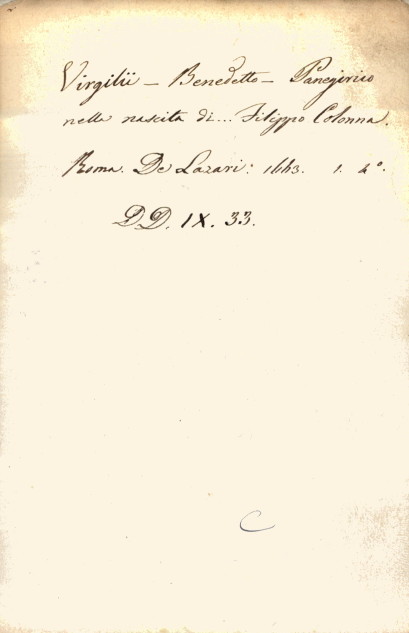 Virgilii – Benedetto – Panegirico
nella nascita di... Filippo Colonna.
Roma. De Lazari: 1663. 1. 4°.
DD. IX. 33.
C